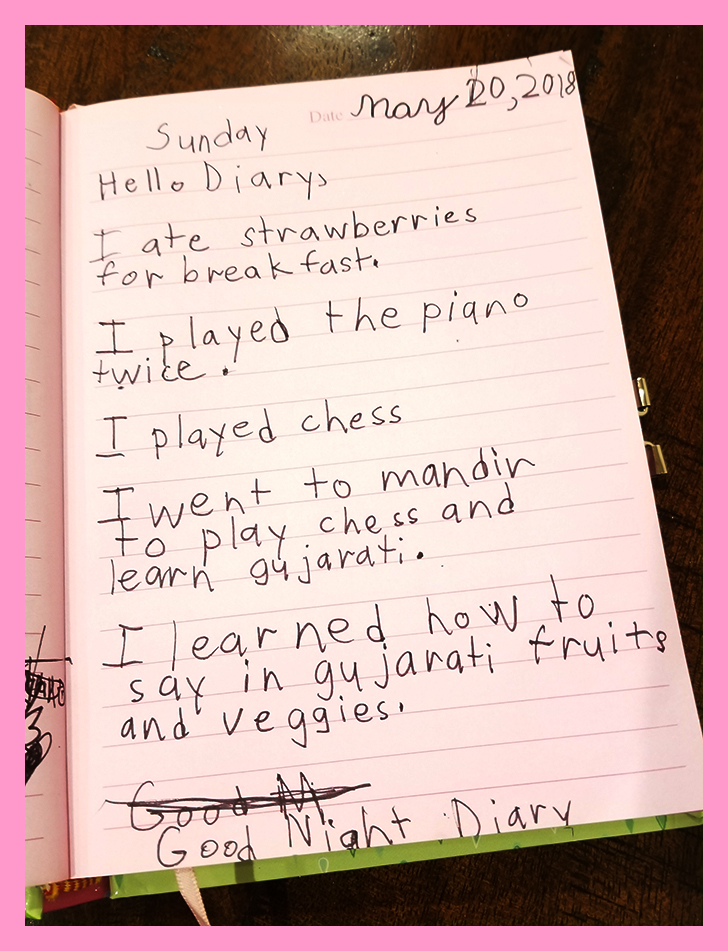 Date May 20, 2018
Sunday
Hello Diary,
I ate strawberries
for breakfast.
I played the piano
twice.
I played chess
I went to mandir
to play chess and
learn gujarati.
I learned how to
say in gujarati fruits
and veggies.
Good M
Good Night Diary